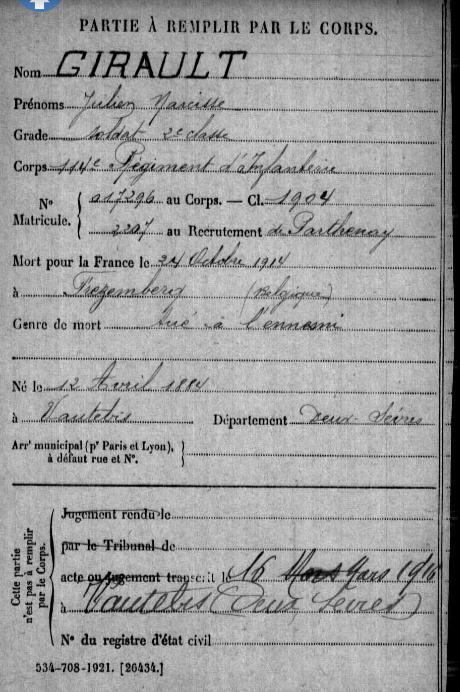 PARTIE À REMPLIR PAR LE CORPS.
Nom GIRAULT
Prénoms Julien Narcisse
Grade Soldat 2e classe
Corps 114e Régiment d'Infanterie
N° Matricule. { 017296 au Corps. — Cl. 1904
2207 au Recrutement de Parthenay
Mort pour la France le 24 Octobre 1914
à Frezemberg (Belgique)
Genre de mort tué à l'ennemi
Né le 12 Avril 1884
à Vautebis Département Deux-Sèvres
Arrt municipal (pr Paris et Lyon), à défaut rue et N°. }
Cette partie n'est pas à remplir par le Corps.
Jugement rendu le
par le Tribunal de
acte ou jugement transcrit le 16 Mars Mars 1916
à Vautebis (Deux Sèvres)
N° du registre d'état civil
534-708-1921. [26434.]